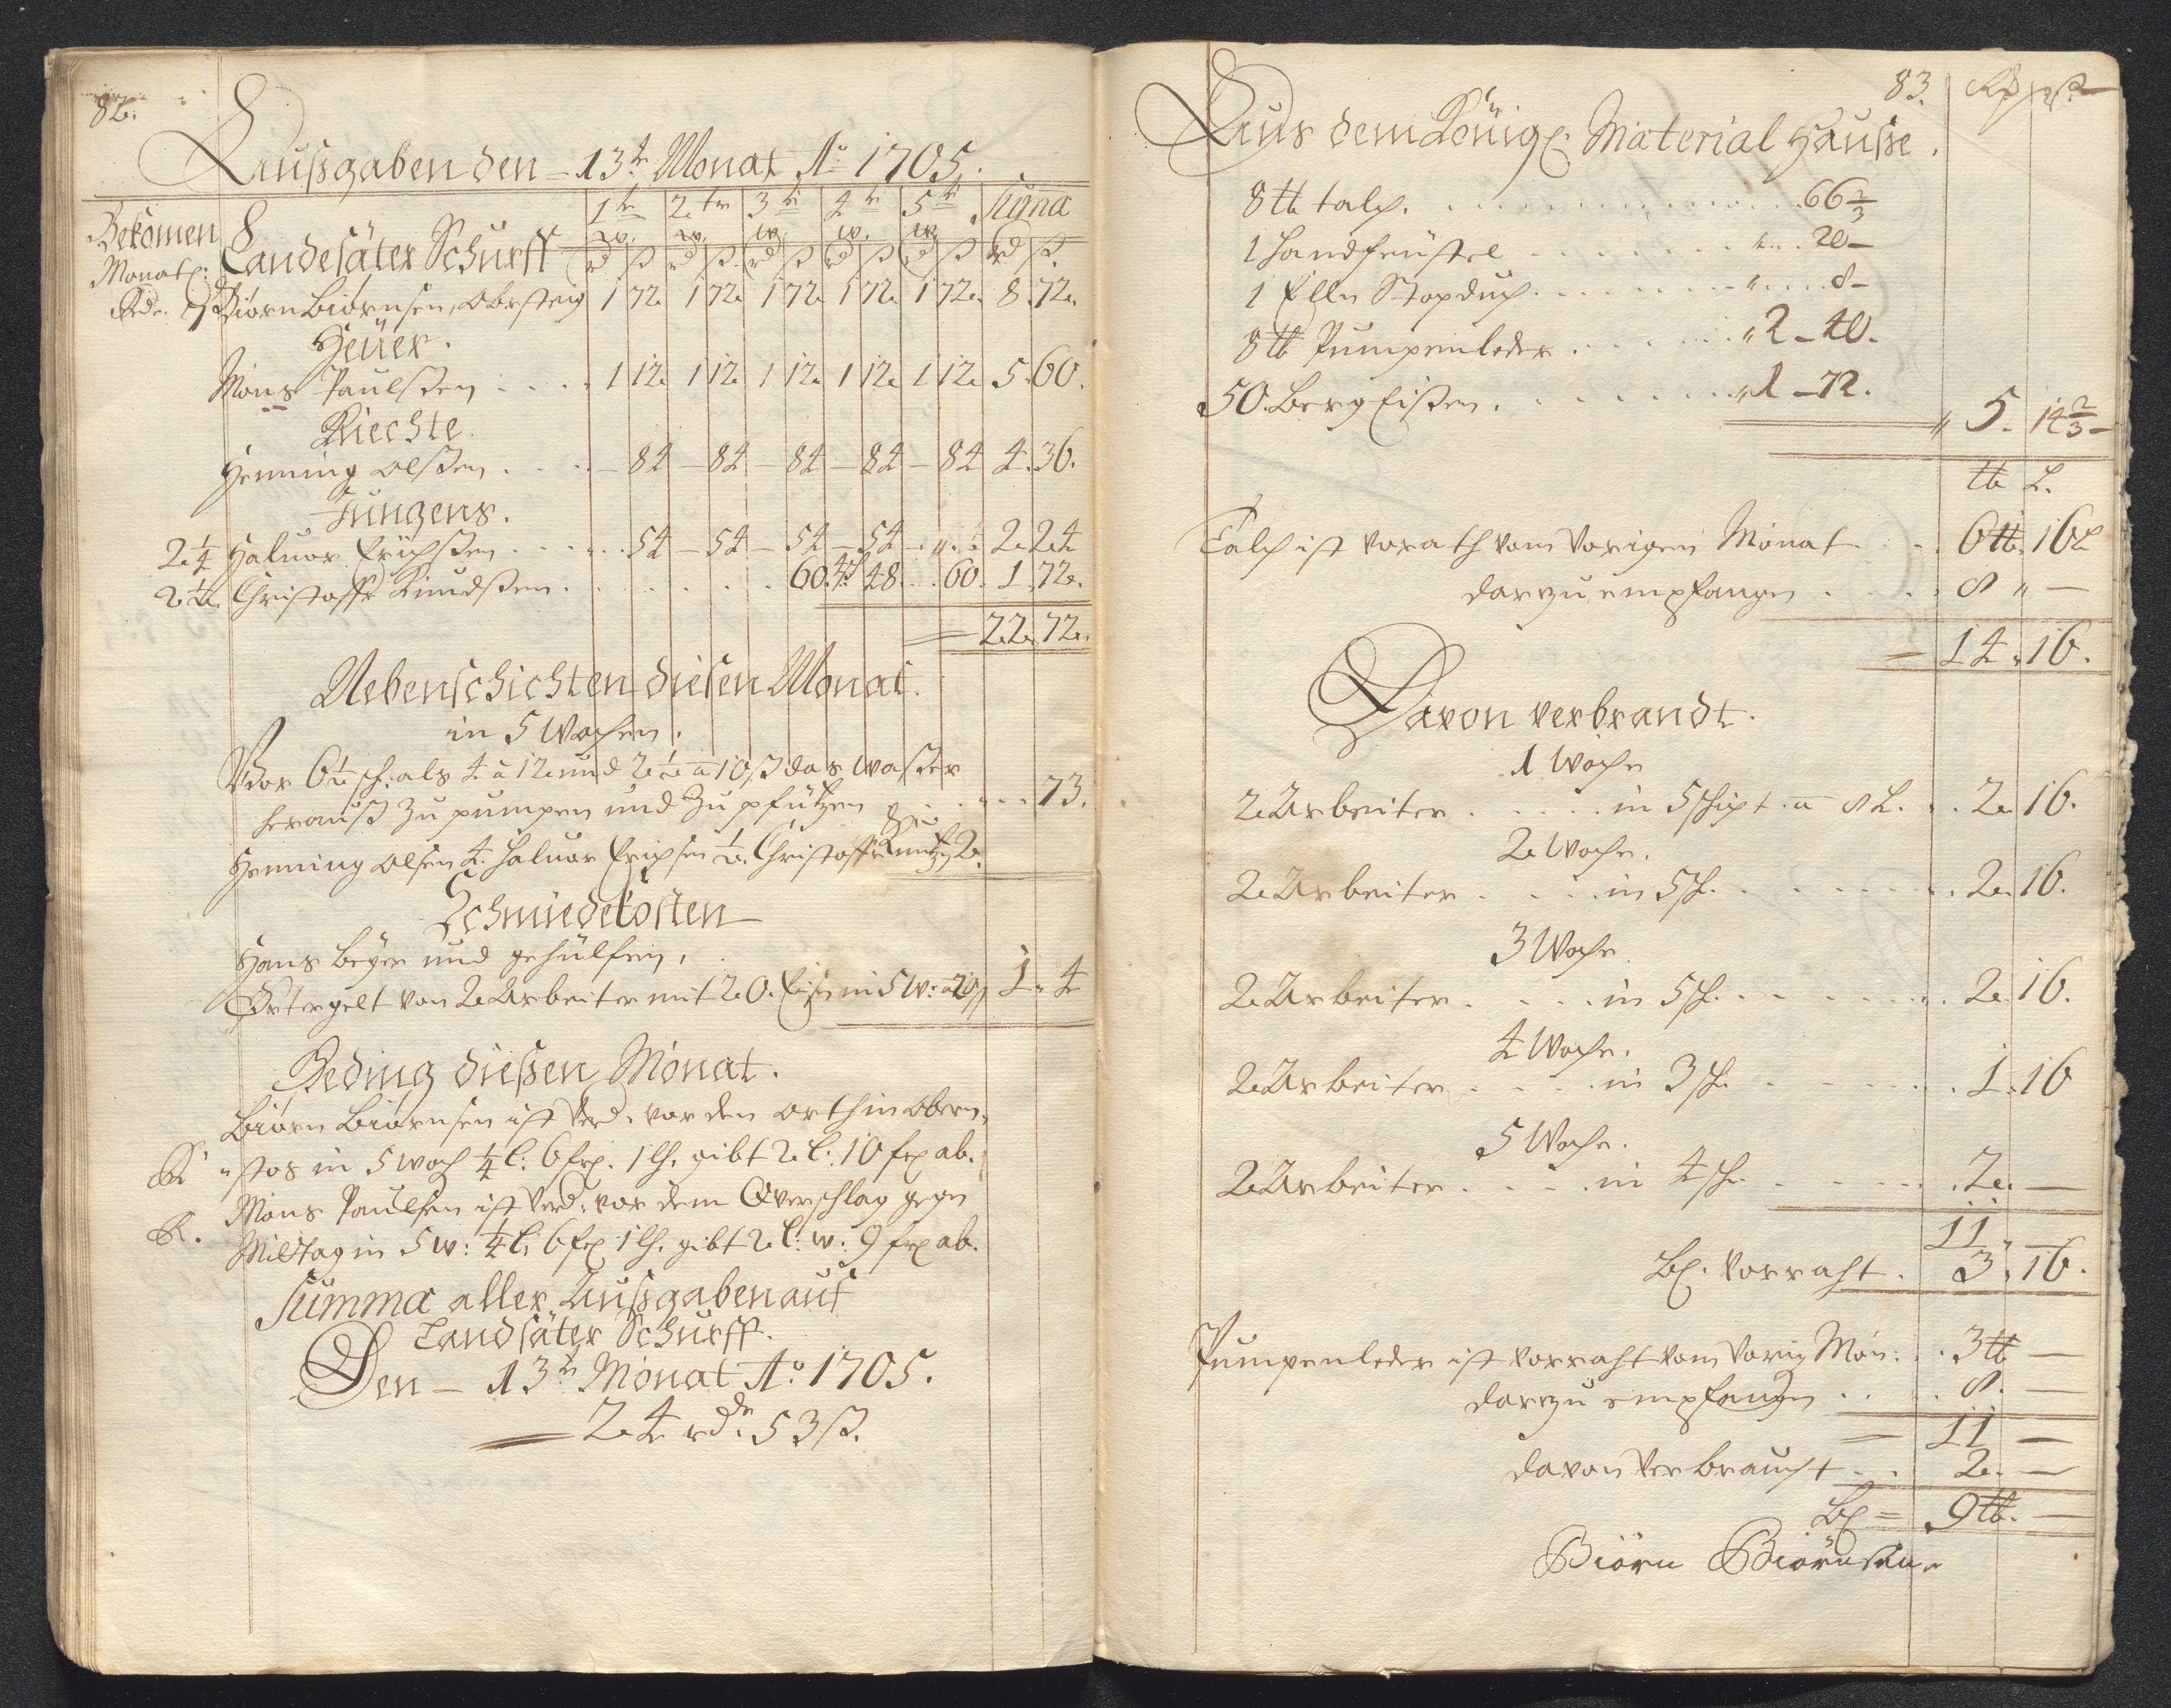 82.
Außgaben den 13te Monat Ao 1705.
Bekomen Monatl: Landesäter Schurff 1te w. 2te w. 3te w. 4te w. 5te w. Suma
rd ß rd ß rd ß rd ß rd ß rd ß.
Biörn Biörnsen, Obersteig 1 72 1 72 1 72 1 72 1 72. 8. 72.
Heüer.
Mons Paulsen .... 1 12 1 12 1 12 1 12 1 12 5. 60.
Kiechte.
Henning Olsen .... – 84 – 84 – 84 – 84 – 84 4. 36.
Jungens.
2 1/4 Haluor Erichsen .... 54 – 54 – 54 – 54 – „ . 2. 24
2 1/2. Christoffr Knudsen . . . . . 60. 48 . . 60. 1. 72.
= 22. 72.
Nebenschichten diesen Monat.
in 5 Wochen.
Vor 6 1/2 sch: als 4 a 12 und 2 1/2 a 10 ß das Wasser
herauß zu pumpen und zu pfützen . . . 73.
Henning Olsen 4. Haluor Erichsen 1/2. Christoffr Knutzen 2.
Schmiedekosten
Hans Beyer und gehülfen,
Örtergelt von 2 Arbeiter mit 20. Eisen in 5 W: a 20 ß 1. 4
Geding diesen Monat.
Biörn Biörnsen ist Verd. vor den Orth in obern-
stos in 5 woch 1/4 l: 6 frp. 1 lh. gibt 2 l: 10 frp ab.
Mons Paulsen ist Verd: vor dem Overschlag gegen
Mittag in 5 w: 1/4 l: 6 frp 1 lh. gibt 2 l: w: 9 frp ab.
Summa aller Außgaben auf
Landsäter Schurff.
Den – 13te Monat Ao 1705.
24 rdr 53 ß.
83.
Aus dem Königl: Material Hauße.
8 lb talch. . . . . . 66 2/3
1 Handfeüstel . . . . . „ . . 20 –
1 Elln Stopduch . . . . . „ . . . 8 –
8 lb Pumpenleder . . . . . „ 2 – 40.
50. Berg Eisen. . . . . . „ 1 – 72.
„ 5. 14 2/3 –
lb L.
Talch ist Vorath vom Vorigen Monat . . 6 lb. 16 L
darzu empfangen . . . . 8 „ –
= 14. 16.
Davon verbrandt.
1 Woche
2 Arbeiter . . . . . in 5 schicht. a 8 L. . . 2. 16.
2 Woche.
2 Arbeiter . . . . in 5 sch. . . . . . 2. 16.
3 Woche.
2 Arbeiter . . . . in 5 sch. . . . . . 2. 16.
4 Woche.
2 Arbeiter . . . . in 3 sch. . . . . . 1. 16
5 Woche.
2 Arbeiter . . . . in 4 sch. . . . . . 2. –
11 „ –
Bl. Vorraht . 3. 16.
Pumpenleder ist Vorraht vom Vorig Mon: . . 3 lb –
darzu empfangen . . . . 8. –
= 11 –
davon Verbraucht . . 2. –
Bl = 9 lb. –
Biörn Biörnsen